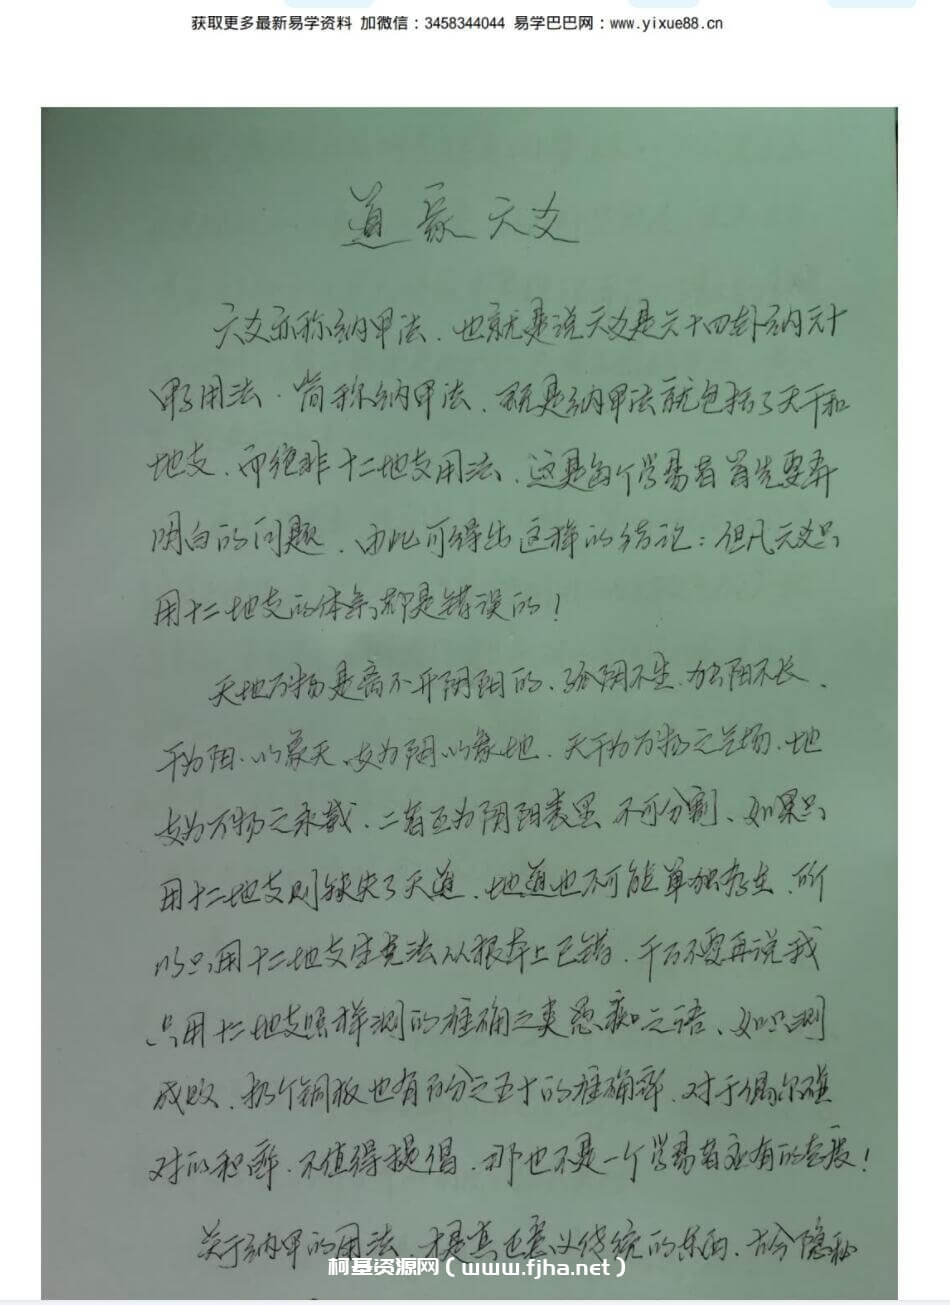 获取更多最新易学资料 加微信：3458344044 易学巴巴网：www.yixue88.cn
道家六爻
六爻亦称纳甲法，也就是说六爻是六十四卦纳六十
甲子用法，简称纳甲法，既是纳甲法就包括了天干和
地支，而绝非十二地支用法，这是每个学易者首先要弄
明白的问题，由此可得出这样的结论：但凡六爻只
用十二地支的体系都是错误的！
天地万物是离不开阴阳的，孤阴不生，独阳不长，
干为阳，以象天，支为阴以象地，天干为万物之气场，地
支为万物之承载，二者互为阴阳表里 不可分割、如果只
用十二地支则缺失了天道，地道也不可能单独存在，所
以只用十二地支生克法从根本上已错，千万不要再说我
只用十二地支照样测的准确之类愚痴之语、如只测
成败，扔个铜板也有百分之五十的准确率，对于偶尔碰
对的概率，不值得提倡，那也不是一个学易者应有的态度！
关于纳甲的用法，才是真正意义传统的东西，古今隐秘
柯基资源网（www.fjha.net）